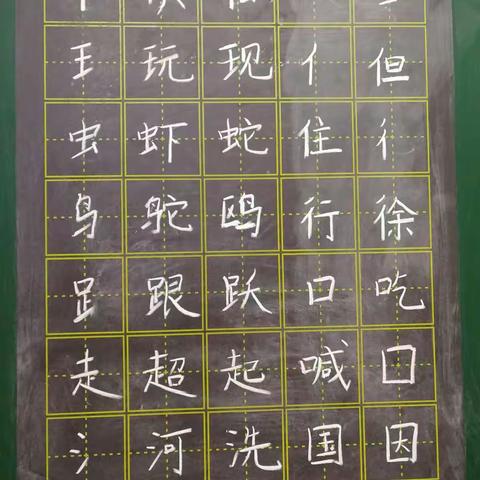 王 玩 现 亻 但
虫 虾 蛇 住 彳
鸟 鸵 鸥 行 徐
𧾷 跟 跃 口 吃
走 超 起 喊 囗
氵 河 洗 国 因